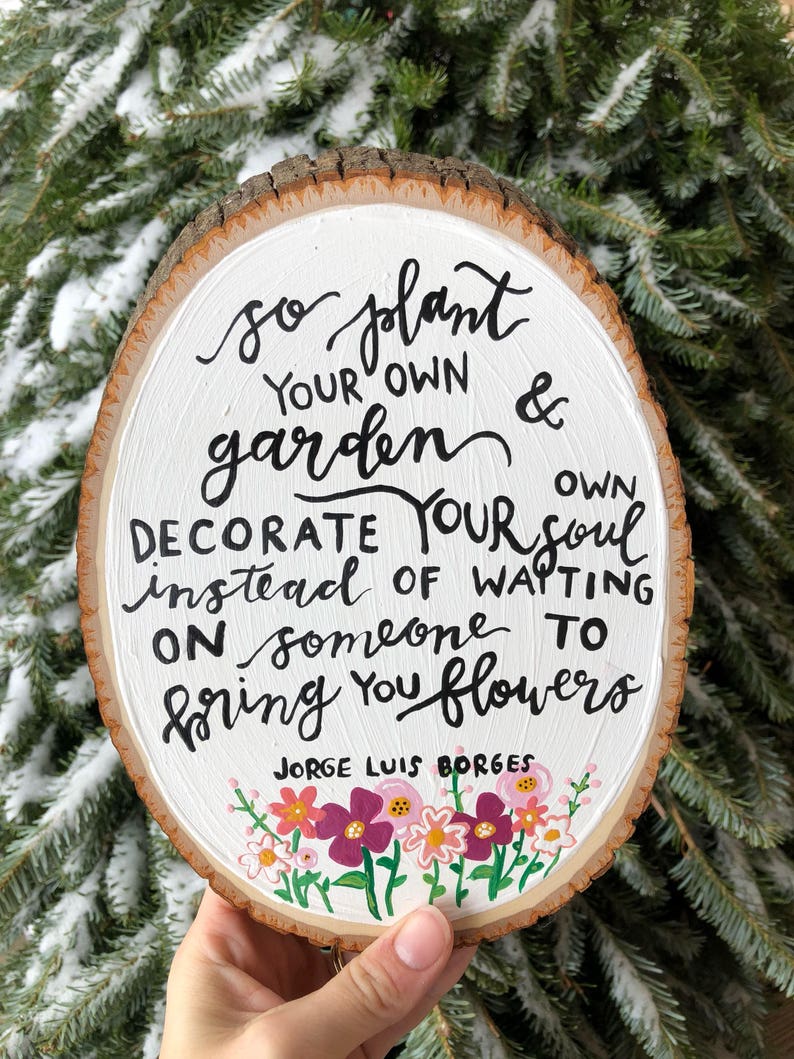 so plant
YOUR OWN &
garden
OWN
DECORATE YOUR soul
instead OF WAITING
ON someone TO
bring YOU flowers
JORGE LUIS BORGES